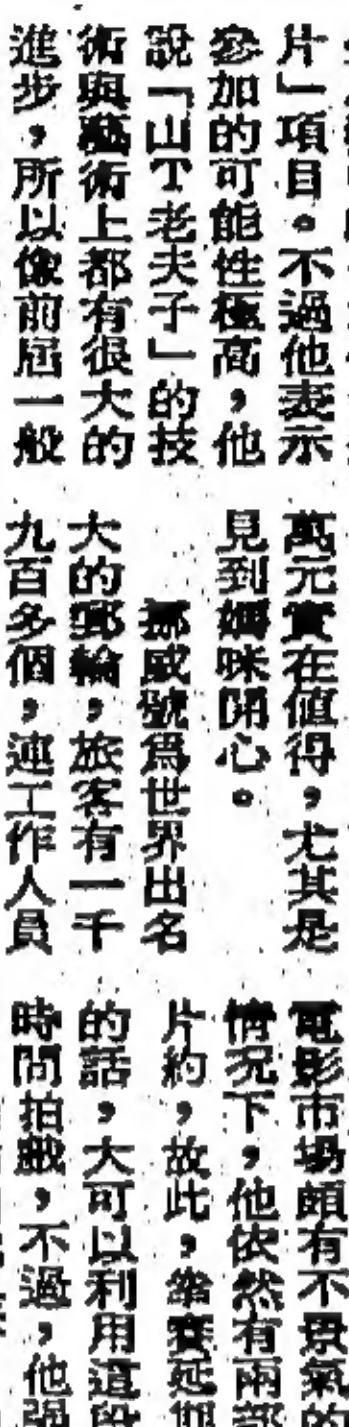 片」項目。不過他表示
參加的可能性極高，他
說「山T老夫子」的技
術與藝術上都有很大的
進步，所以像前屆一般
萬元實在值得，尤其是
見到媽咪開心。
挪威號爲世界出名
大的郵輪，旅客有一千
九百多個，連工作人員
電影市場頗有不景氣的
情況下，他依然有兩部
片約，故此，
的話，大可以利用這段
時間拍戲，不過，他